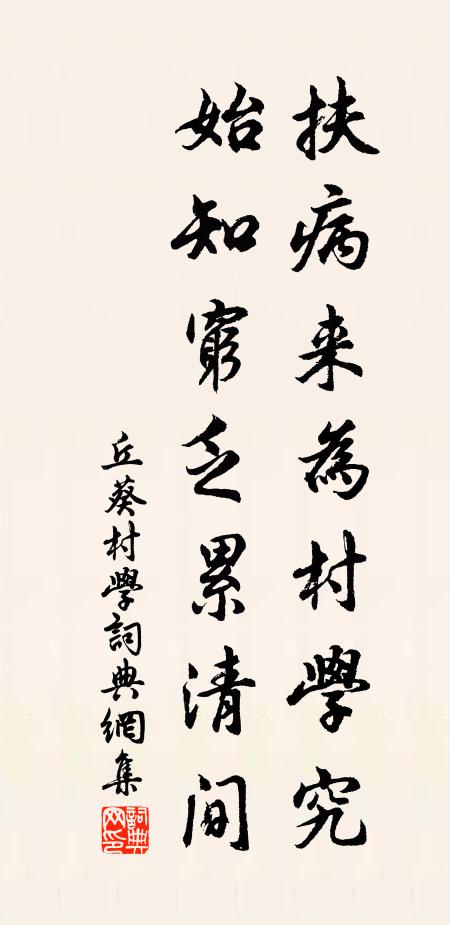 扶病来為村學究
始知窮乏累清间
丘葵村學詞典網集
詞典網印